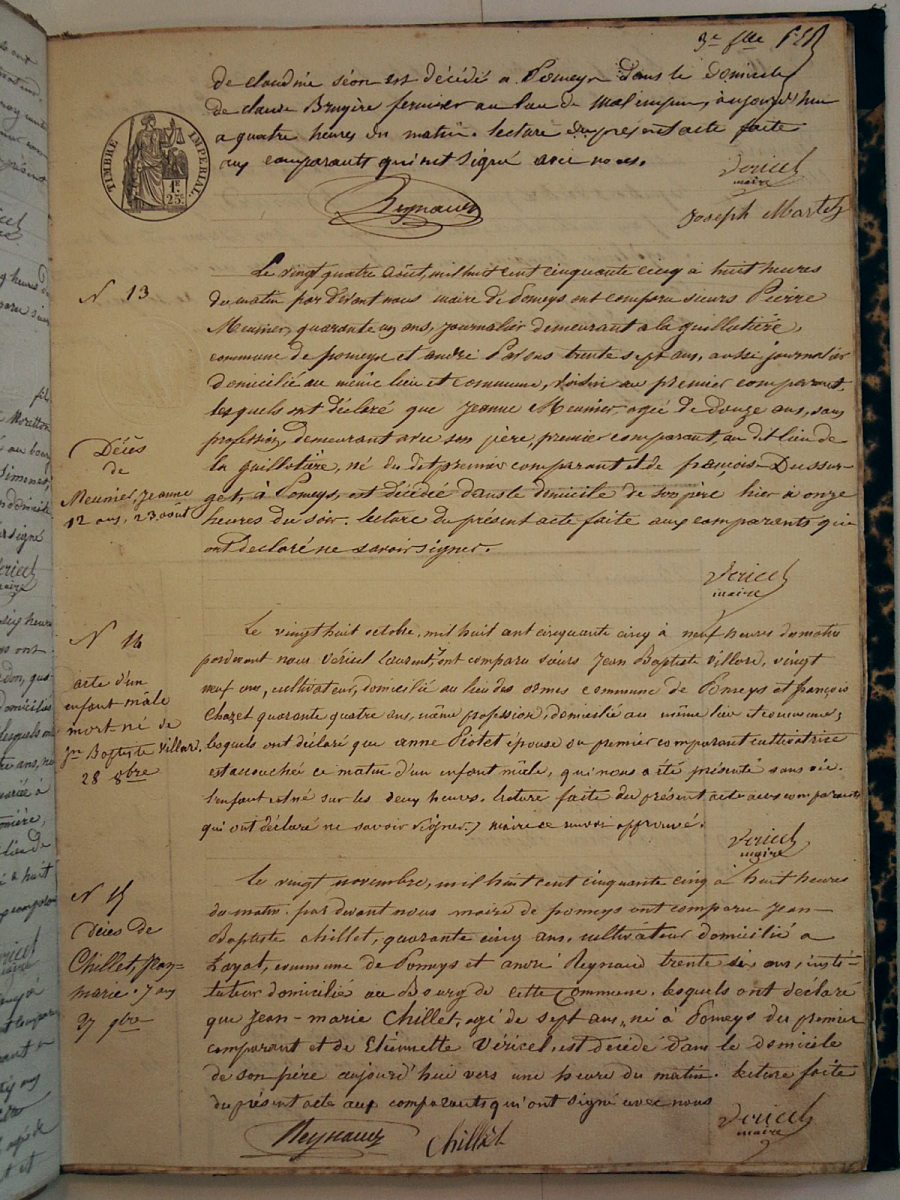 3e flle
de claudine séon est décédé a Pomeys dans le domicile
de claude Bruyère fermier au lieu de , aujourd'hui
a quatre heures du matin. lecture du présent acte faite
aux comparants qui ont signé avec nous.
TIMBRE IMPERIAL
1F 25c
Vericel
maire
Reynaud
Joseph Martel
N 13
Décès
de
Meunier, Jeanne
12 ans, 23 aout
Le vingt quatre août, mil huit cent cinquante cinq à huit heures
du matin par devant nous maire de Pomeys ont comparu sieurs Pierre
Meunier, quarante ans, journalier demeurant a la guillotière,
commune de pomeys et andré trente sept ans, aussi journalier
domicilié au même lieu et commune, voisin au premier comparant,
lesquels ont déclaré que Jeanne Meunier agée de douze ans, sans
profession, demeurant avec son père, premier comparant, au dit lieu de
la guillotière, né du dit premier comparant et de françoise Dussur-
get, à Pomeys, est décédée dans le domicile de son père hier à onze
heures du soir. lecture du présent acte faite aux comparents qui
ont declaré ne savoir signer.
Vericel
maire
N 14
acte d'un
enfant mâle
mort né de
Jn Baptiste Villard
28 8bre
Le vingt huit octobre, mil huit cent cinquante cinq à neuf heures du matin
pardevant nous Véricel Laurent, ont comparu sieurs Jean Baptiste Villard, vingt
neuf ans, cultivateur, domicilié au lieu des ormes commune de Pomeys et françois
Chazet quarante quatre ans, même profession, domicilié au même lieu et commune,
lesquels ont déclaré que anne Piotet épouse du premier comparant cultivatrice
est accouché ce matin d'un enfant mâle, qui nous a été présenté sans vie.
l'enfant est né sur les deux heures. lecture faite du présent acte aux comparants
qui ont déclaré ne savoir signer, maire ce renvoi approuvé.
Vericel
maire
N 15
Décès de
Chillet, Jean
marie. 7 ans
9bre
Le vingt novembre, mil huit cent cinquante cinq à huit heures
du matin. par devant nous maire de pomeys ont comparu Jean
Baptiste chillet, quarante cinq ans, cultivateur domicilié a
commune de Pomeys et andré Reynaud trente six ans, insti-
tuteur domicilié au Bourg de cette Commune. lesquels ont déclaré
que Jean-marie Chillet, agé de sept ans, né à Pomeys du premier
comparant et de Etiennette Véricel, est décédé dans le domicile
de son père aujourd'hui vers une heure du matin. lecture faite
du présent acte aux comparants qui ont signé avec nous
Reynaud
Chillet
Vericel
maire